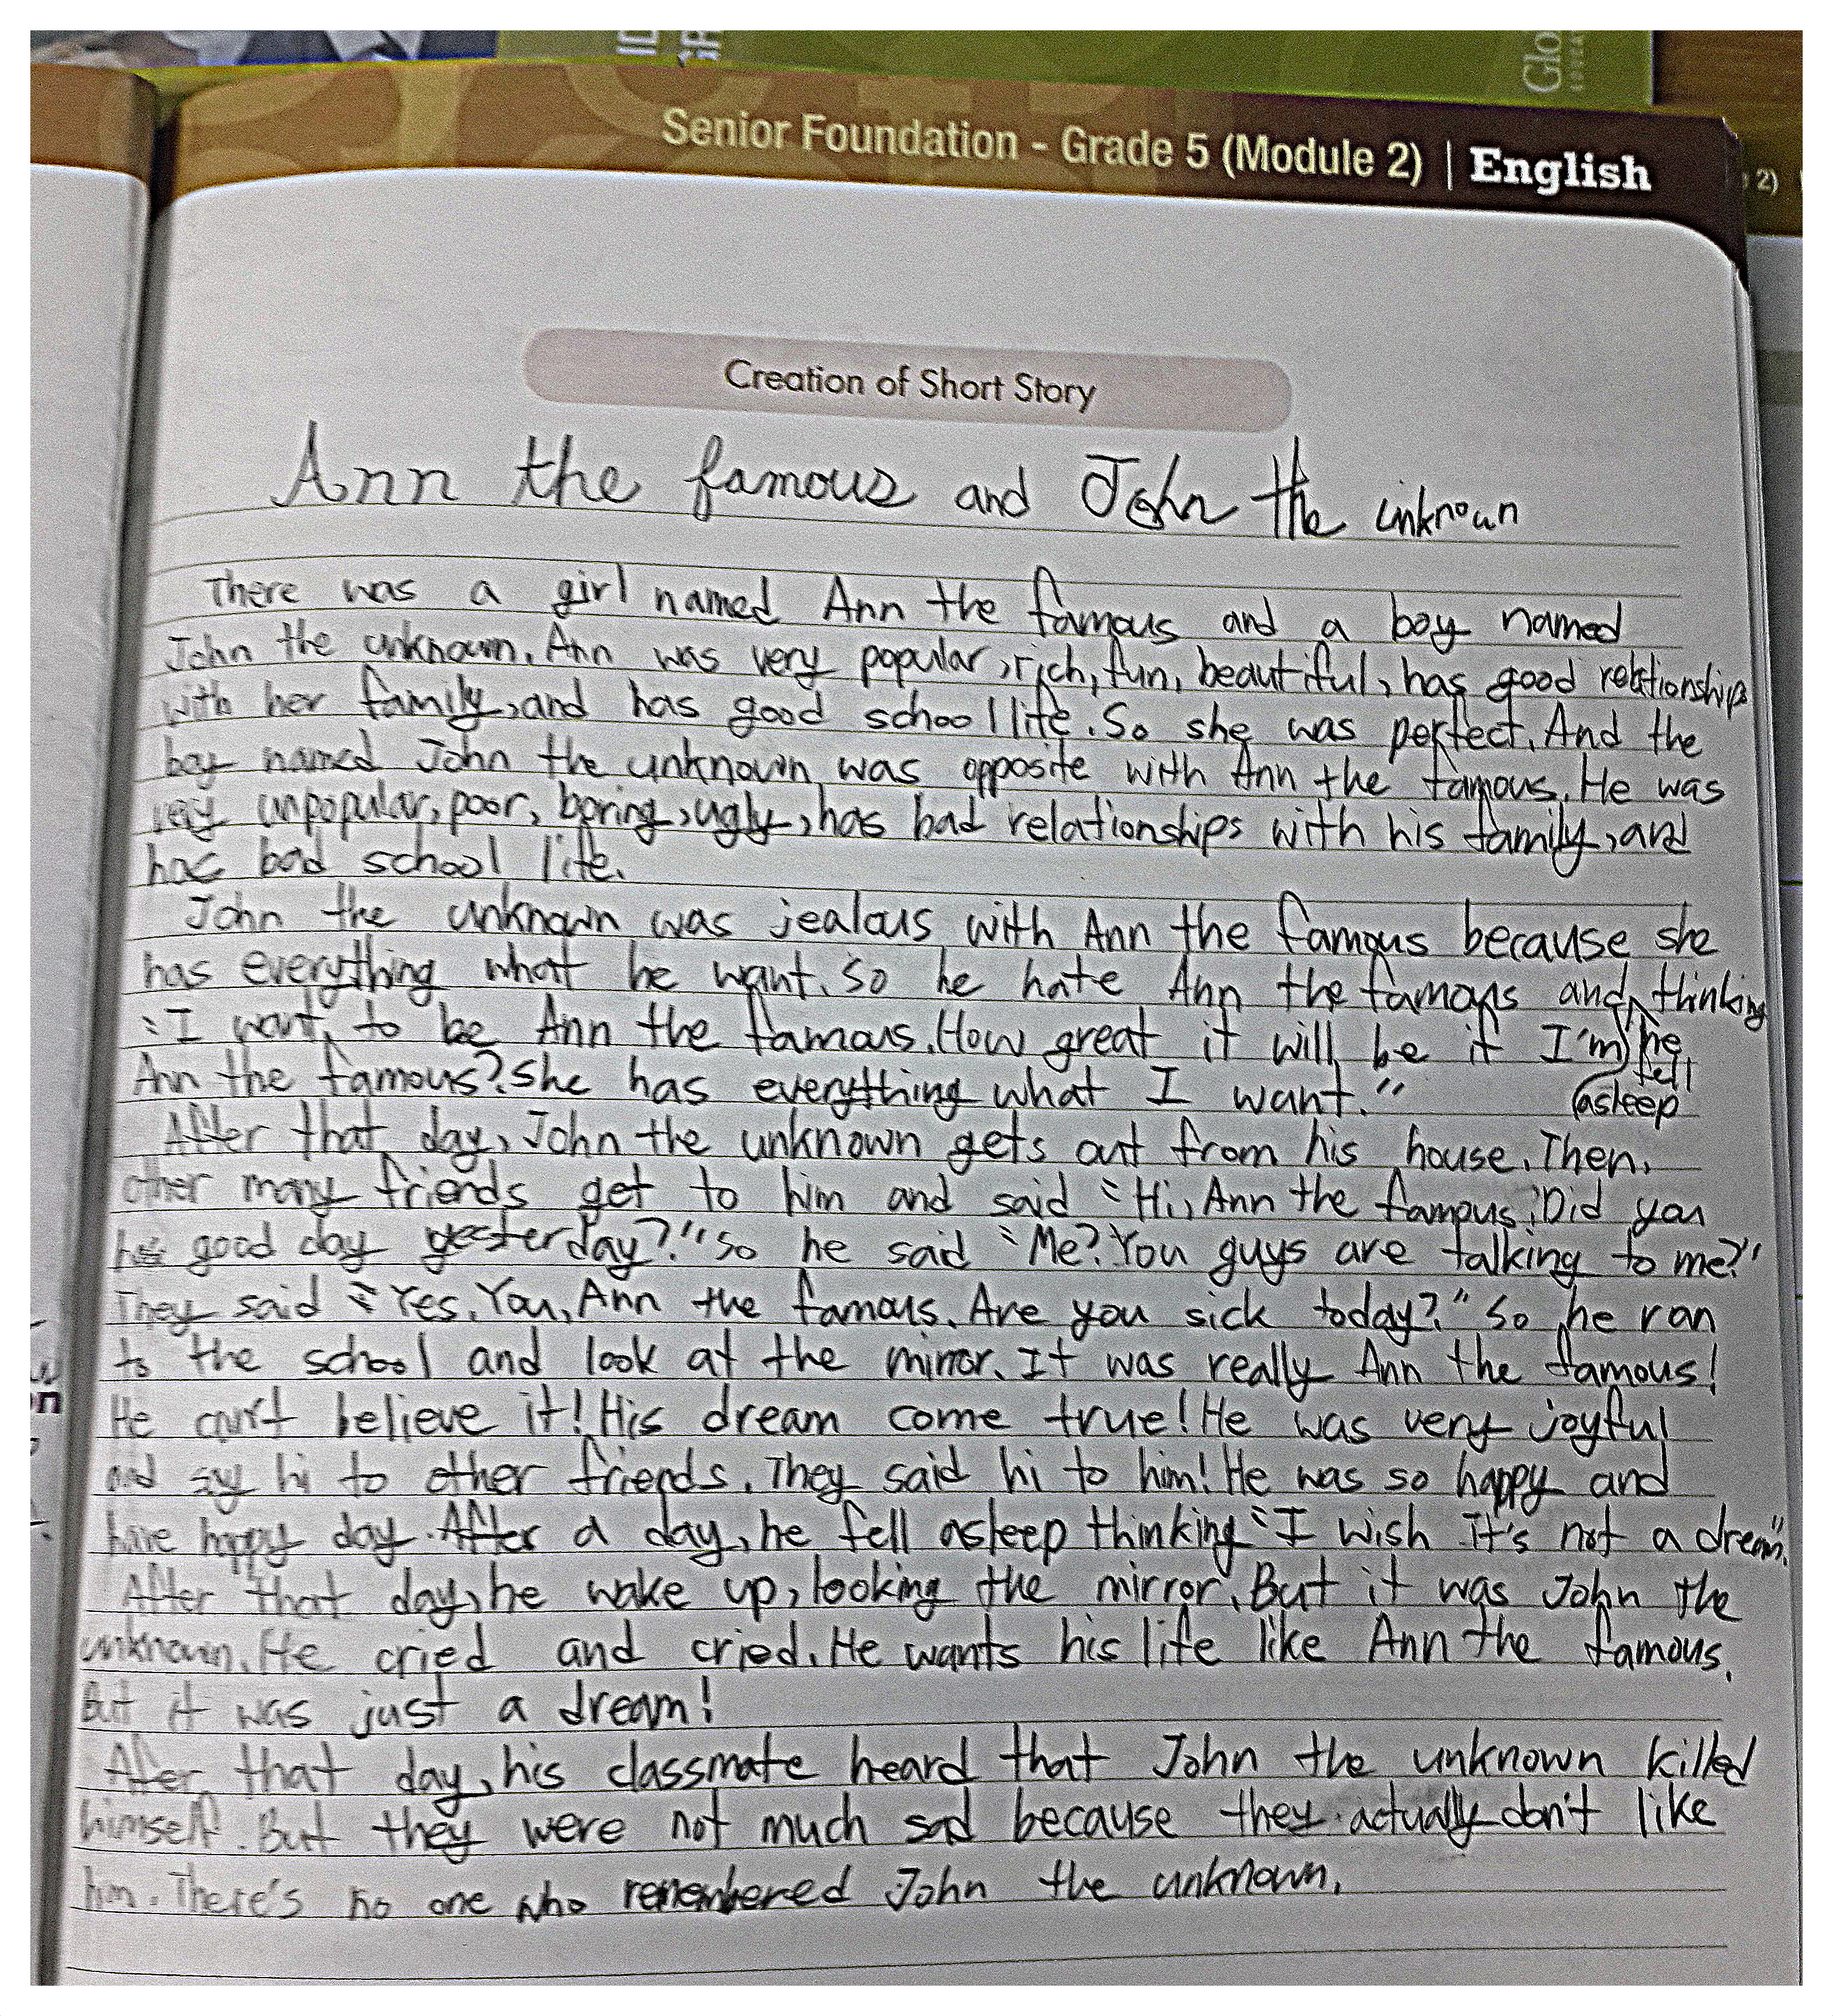 ID
GR
Glo
Senior Foundation - Grade 5 (Module 2) | English
2)
Creation of Short Story
Ann the famous and John the unknown
There was a girl named Ann the famous and a boy named
John the unknown. Ann was very popular, rich, fun, beautiful, has good relationships
with her family, and has good school life. So she was perfect. And the
boy named John the unknown was opposite with Ann the famous. He was
very unpopular, poor, boring, ugly, has bad relationships with his family, and
has bad school life.
John the unknown was jealous with Ann the famous because she
has everything what he want. So he hate Ann the famous and he fell asleep thinking
"I want to be Ann the famous. How great it will be if I'm
Ann the famous? She has everything what I want."
After that day, John the unknown gets out from his house. Then,
other many friends get to him and said "Hi, Ann the famous! Did you
has good day yesterday?" So he said "Me? You guys are talking to me?"
They said "Yes. You, Ann the famous. Are you sick today?" So he ran
to the school and look at the mirror. It was really Ann the famous!
He can't believe it! His dream come true! He was very joyful
and say hi to other friends. They said hi to him! He was so happy and
have happy day. After a day, he fell asleep thinking "I wish it's not a dream".
After that day, he wake up, looking the mirror. But it was John the
unknown. He cried and cried. He wants his life like Ann the famous.
But it was just a dream!
After that day, his classmate heard that John the unknown killed
himself. But they were not much sad because they actually don't like
him. There's no one who remembered John the unknown.